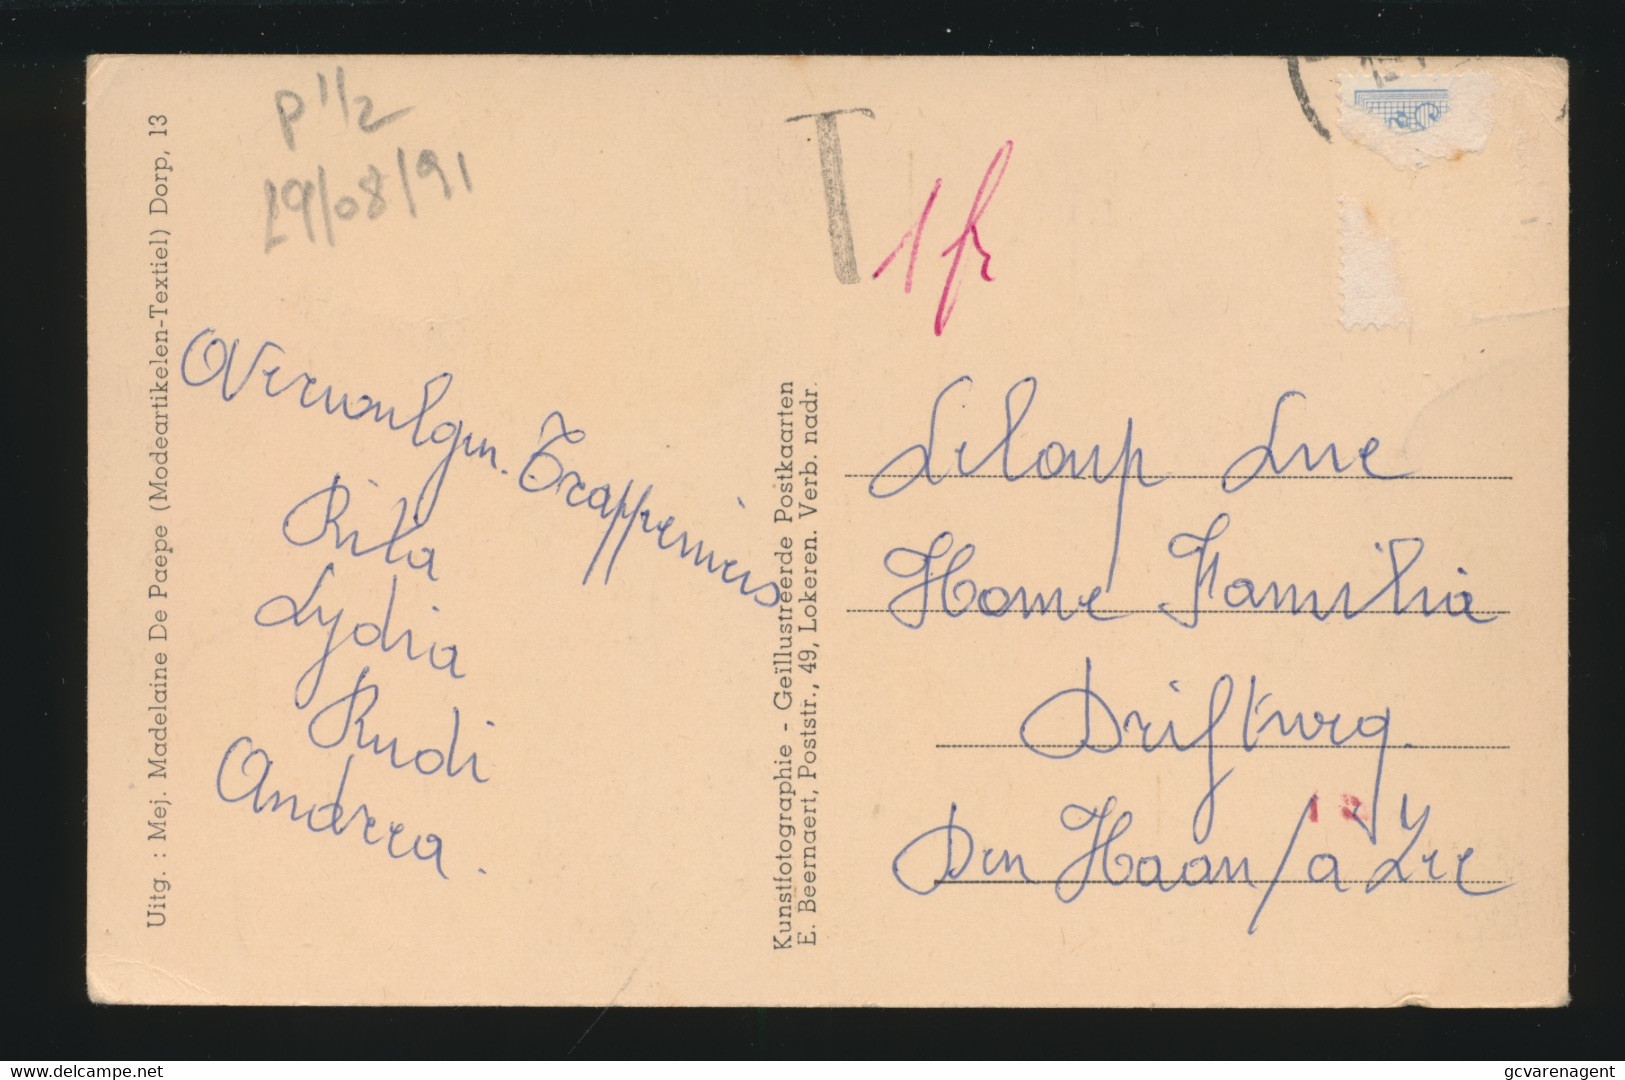 Uitg. : Mej. Madelaine De Paepe (Modeartikelen-Textiel) Dorp, 13
P 1/2
29/08/91
T 1 fr
Verwaulgen. Trappeniers
Rita
Lydia
Rudi
Andrea.
Kunstfotographie - Geïllustreerde Postkaarten
E. Beernaert, Poststr., 49, Lokeren. Verb. nadr.
Leloup Luc
Home Familia
Driftweg.
Den Haan / a Zee
www.delcampe.net
gcvarenagent